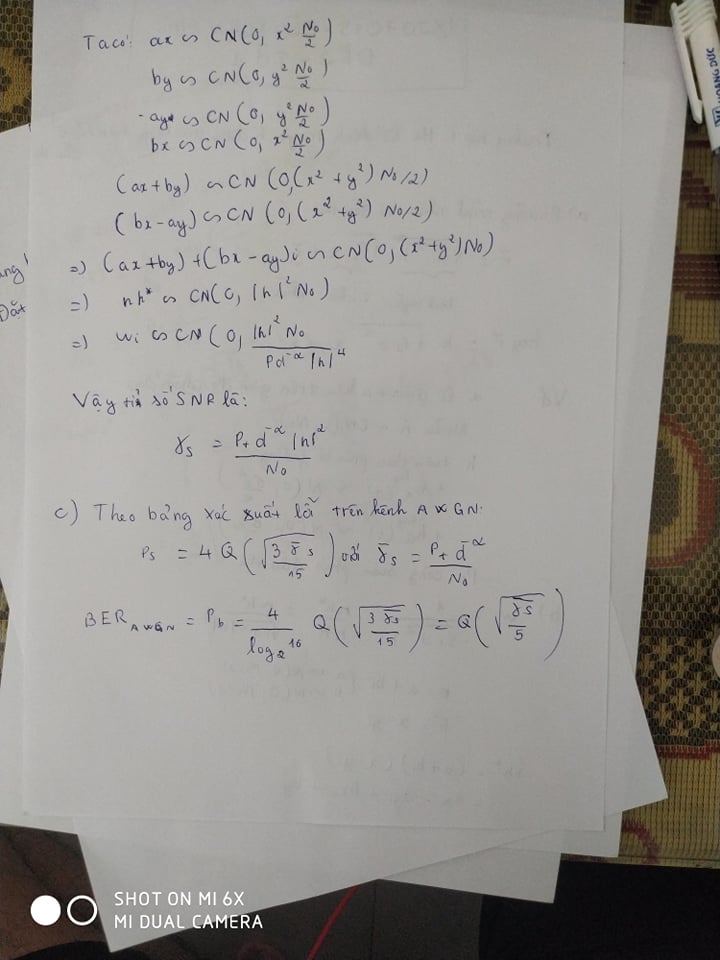 Ta có: ax ∽ CN(0, x² N₀/2)
by ∽ CN(0, y² N₀/2)
-ay ∽ CN(0, y² N₀/2)
bx ∽ CN(0, x² N₀/2)
(ax+by) ∽ CN (0,(x² + y²) N₀/2)
(bx-ay) ∽ CN (0,(x² + y²) N₀/2)
=) (ax+by)+(bx-ay)i ∽ CN(0,(x²+y²)N₀)
=) nh* ∽ CN(0, |h|² N₀)
=) wi ∽ CN (0, |h|² N₀ / Pd^-α |h|⁴
Vậy tỉ số SNR là:
γs = Pt d^-α |h|² / N₀
c) Theo bảng xác suất lỗi trên kênh AWGN.
Ps = 4 Q(√(3 γ̄s / 15)) với γ̄s = Pt d^-α / N₀
BER AWGN = Pb = 4 / log₂16 Q(√(3 γ̄s / 15)) = Q(√(γ̄s / 5))
HOANG DUC
SHOT ON MI 6X
MI DUAL CAMERA